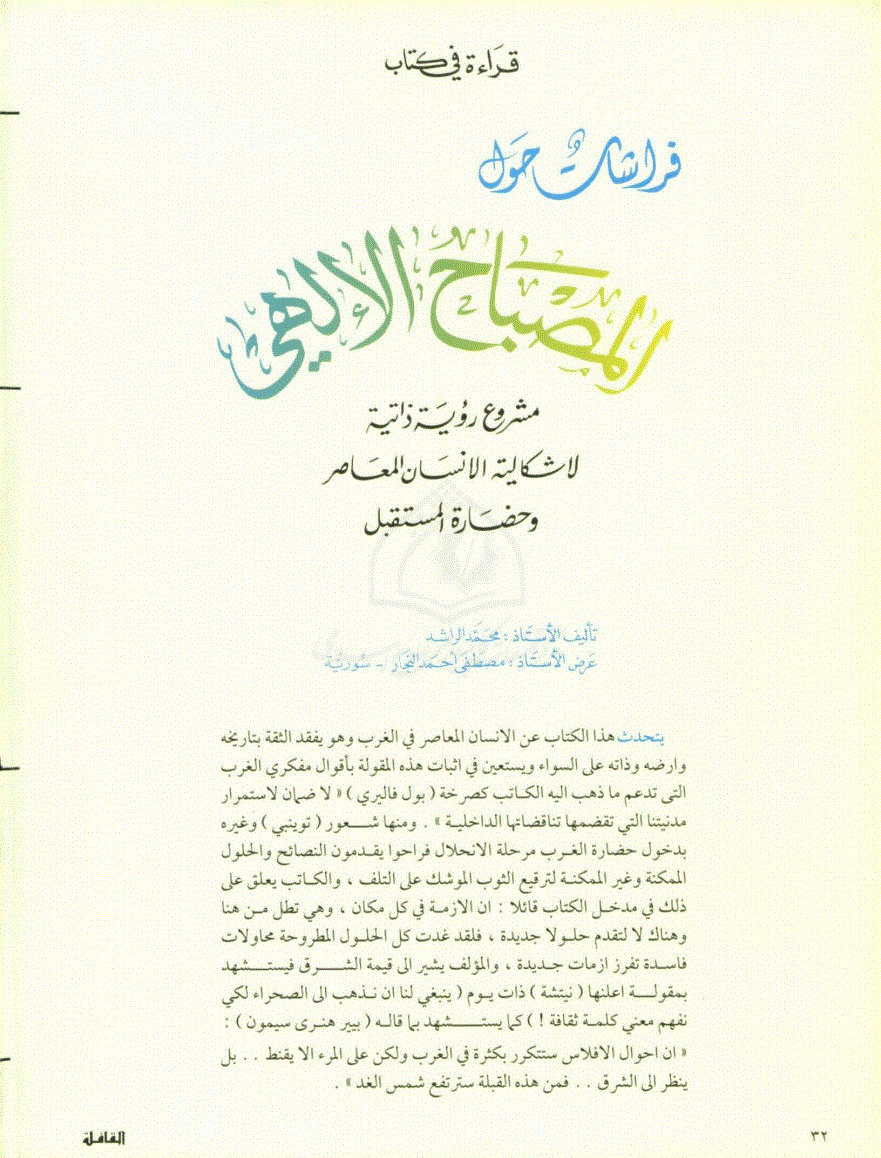 قراءة في كتاب
فراشات حول
المصباح الإلهي
مشروع رؤية ذاتية
لاشكالية الانسان المعاصر
وحضارة المستقبل
تأليف الأستاذ : محمد الراشد
عرض الأستاذ : مصطفى أحمد النجار - سورية
يتحدث هذا الكتاب عن الانسان المعاصر في الغرب وهو يفقد الثقة بتاريخه
وارضه وذاته على السواء ويستعين في اثبات هذه المقولة بأقوال مفكري الغرب
التى تدعم ما ذهب اليه الكاتب كصرخة ( بول فاليري ) « لا ضمان لاستمرار
مدنيتنا التي تقضمها تناقضاتها الداخلية » . ومنها شعور ( توينبي ) وغيره
بدخول حضارة الغرب مرحلة الانحلال فراحوا يقدمون النصائح والحلول
الممكنة وغير الممكنة لترقيع الثوب الموشك على التلف ، والكاتب يعلق على
ذلك في مدخل الكتاب قائلا : ان الازمة في كل مكان ، وهي تطل من هنا
وهناك لا لتقدم حلولا جديدة ، فلقد غدت كل الحلول المطروحة محاولات
فاسدة تفرز ازمات جديدة ، والمؤلف يشير الى قيمة الشرق فيستشهد
بمقولة اعلنها ( نيتشة ) ذات يوم ( ينبغي لنا ان نذهب الى الصحراء لكي
نفهم معني كلمة ثقافة ! ) كما يستشهد بما قاله ( بيير هنرى سيمون ) :
« ان احوال الافلاس ستتكرر بكثرة في الغرب ولكن على المرء الا يقنط . . بل
ينظر الى الشرق . . فمن هذه القبلة سترتفع شمس الغد » .
٣٢
القافلة